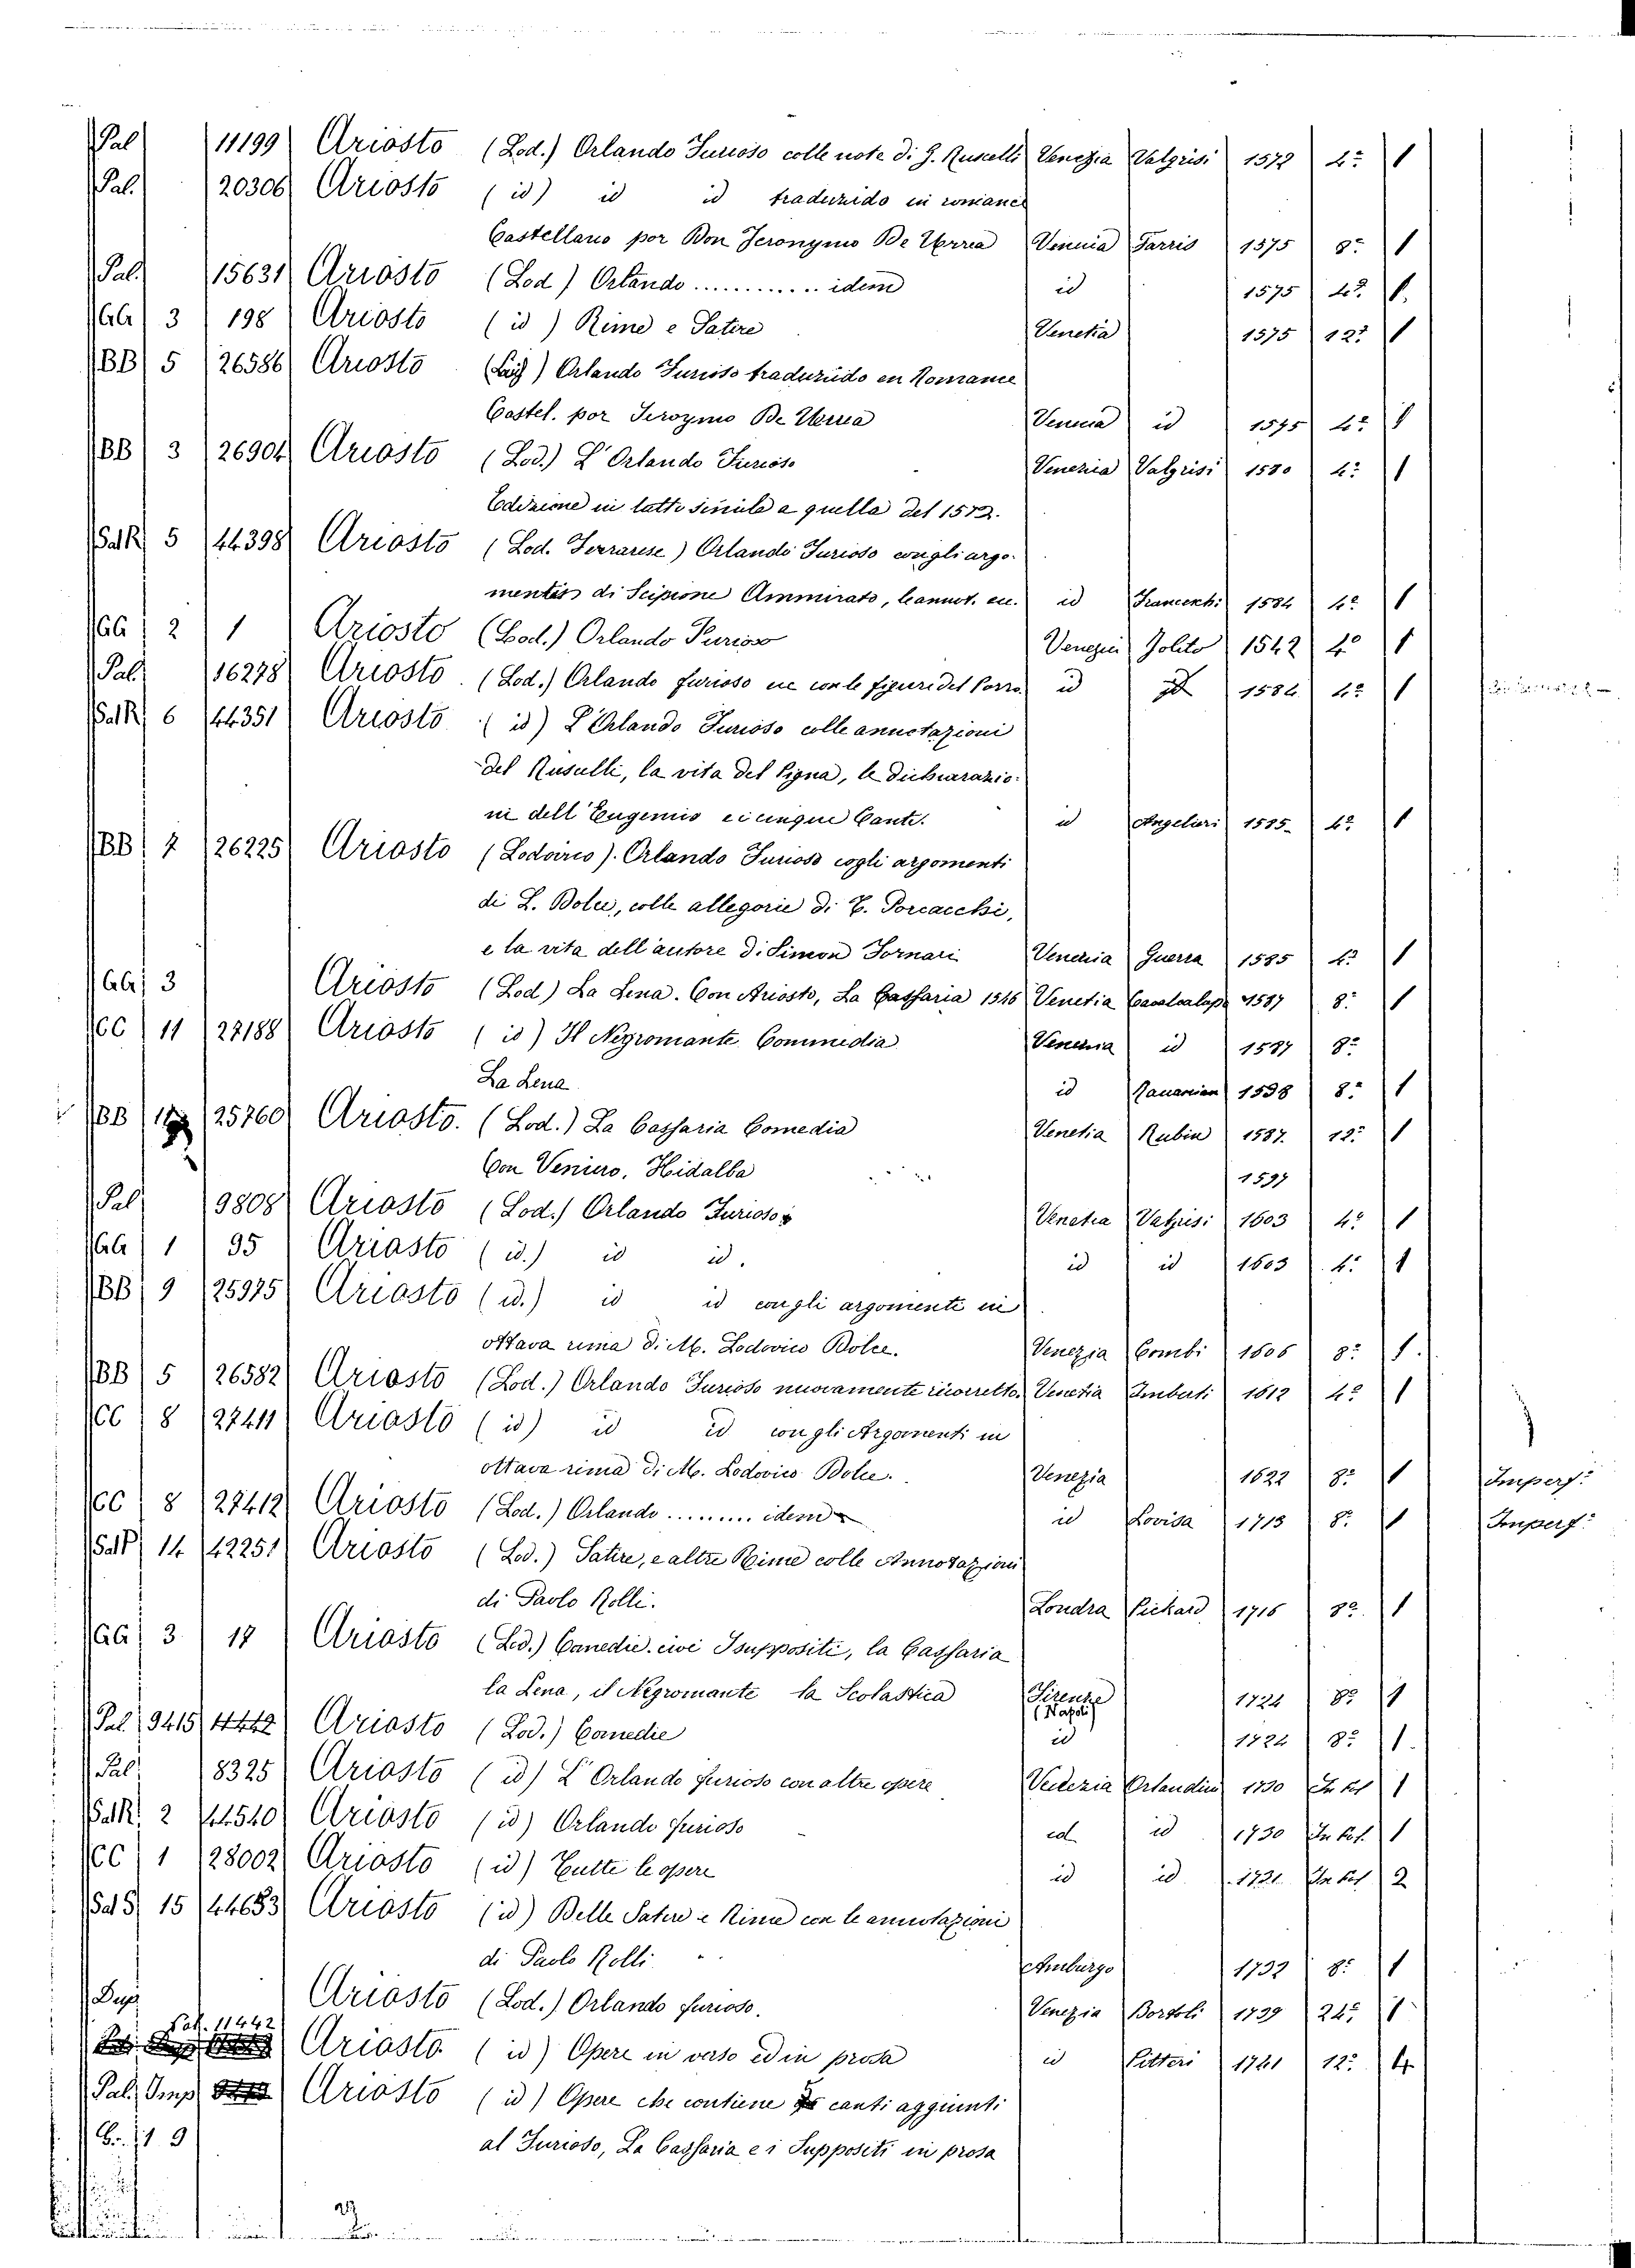 Pal 11199 Ariosto (Lod.) Orlando Furioso colle note di G. Ruscelli Venezia Valgrisi 1572 4º 1
Pal. 20306 Ariosto (id) id id traduzido in romance
Castellano por Don Jeronymo De Urrea Venecia Farris 1575 8º 1
Pal. 15631 Ariosto (Lod) Orlando ............ idem id 1575 4º 1.
GG 3 198 Ariosto (id) Rime e Satire Venetia 1575 12º 1
BB 5 26586 Ariosto Orlando Furioso traduzido en Romance
Castel. por Jeroymo De Urrea Venecia id 1575 4º 1
BB 3 26904 Ariosto (Lod.) L'Orlando Furioso Venezia Valgrisi 1580 4º 1
Edizione in tutto simile a quella del 1572.
SdR 5 44398 Ariosto (Lod. Ferrarese) Orlando Furioso con gli argo-
mentis di Scipione Ammirato, le annot. ecc. id Franceschi 1584 4º 1
GG 2 1 Ariosto (Lod.) Orlando Furioso Venezia Jolito 1542 4º 1
Pal. 16278 Ariosto (Lod.) Orlando furioso ecc con le figure del Porro id id 1584 4º 1
SdR 6 44351 Ariosto (id) L'Orlando Furioso colle annotazioni
del Ruscelli, la vita del Pigna, le dichiarazio-
ni dell'Eugenico ei cinque Canti. id Angelieri 1585 4º 1
BB 7 26225 Ariosto (Lodovico). Orlando Furioso cogli argomenti
di L. Dolce, colle allegorie di T. Porcacchi,
e la vita dell'autore di Simon Fornari Venezia Guerra 1585 4º 1
GG 3 Ariosto (Lod) La Lena. Con Ariosto, La Cassaria 1546 Venetia 1587 8º 1
CC 11 27188 Ariosto (id) Il Negromante Commedia Venezia id 1587 8º
La Lena id 1538 8º 1
BB 25760 Ariosto. (Lod.) La Cassaria Comedia Venetia Rubin 1587 12º 1
Con Veniero. Hidalba 1597
Pal 9808 Ariosto (Lod.) Orlando Furioso Venetia Valgrisi 1603 4º 1
GG 1 95 Ariosto (id.) id id. id id 1603 4º 1
BB 9 25975 Ariosto (id.) id id con gli argomenti in
ottava rima di M. Lodovico Dolce. Venezia Combi 1606 8º 1.
BB 5 26582 Ariosto (Lod.) Orlando Furioso nuovamente ricorretto. Venetia Imberti 1612 4º 1
CC 8 27411 Ariosto (id) id id con gli Argomenti in
ottava rima di M. Lodovico Dolce. Venezia 1622 8º 1 Imperf:
CC 8 27412 Ariosto (Lod.) Orlando ......... idem id Lovisa 1713 8º 1 Imperf:
SdP 14 42251 Ariosto (Lod.) Satire, e altre Rime colle Annotazioni
di Paolo Rolli. Londra Pickard 1716 8º 1
GG 3 17 Ariosto (Lod.) Comedie. cioè I suppositi, la Cassaria
la Lena, il Negromante la Scolastica Firenze (Napoli) 1724 8º 1
Pal. 9415 Ariosto (Lod.) Comedie id 1724 8º 1.
Pal. 8325 Ariosto (id) L'Orlando furioso con altre opere Venezia Orlandini 1730 In fol 1
SdR 2 44540 Ariosto (id) Orlando furioso id id 1730 In fol. 1
CC 1 28002 Ariosto (id) Tutte le opere id id 1731 In fol 2
SdS 15 44683 Ariosto (id) Delle Satire e Rime con le annotazioni
di Paolo Rolli Amburgo 1732 8º 1
Dup Ariosto (Lod.) Orlando furioso. Venezia Bortoli 1739 24º 1
Pal. 11442
Ariosto (id) Opere in verso ed in prosa id Pitteri 1741 12º 4
Pal. Imp Ariosto (id) Opere che contiene canti aggiunti
9 al Furioso, La Cassaria e i Suppositi in prosa